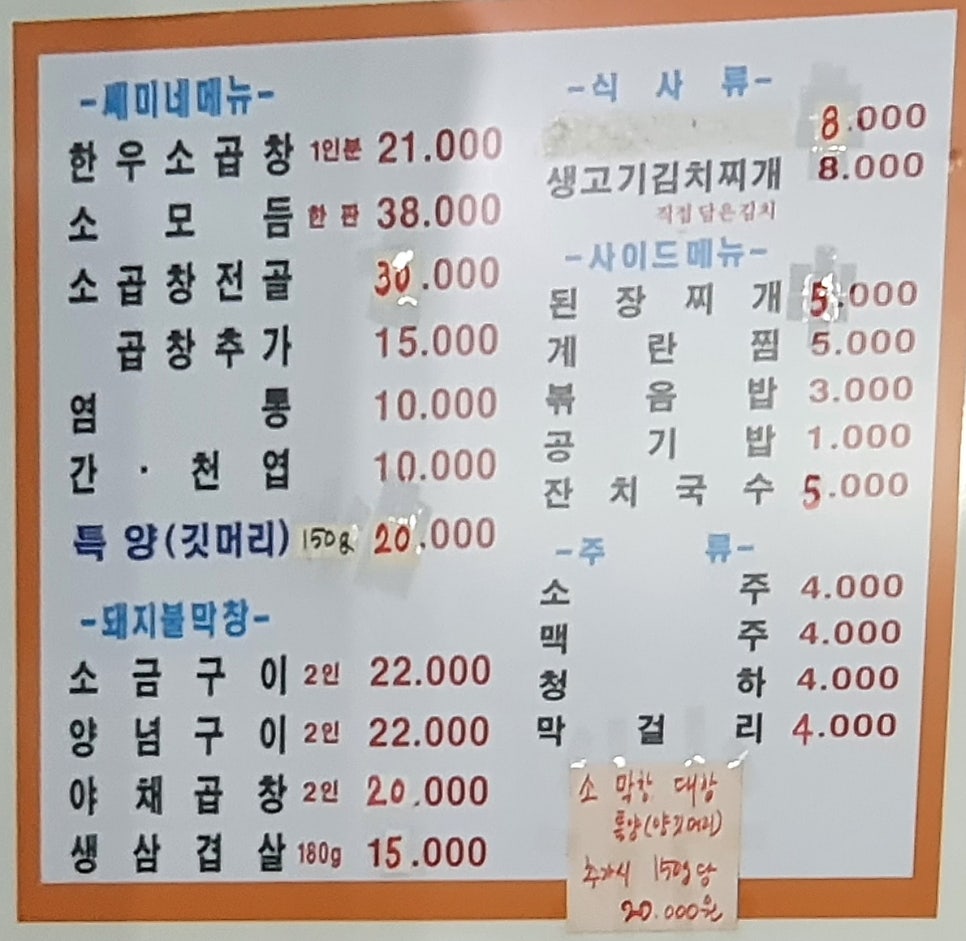 -쎄미네메뉴-
한우소곱창 1인분 21.000
소모듬 한판 38.000
소곱창전골 30.000
곱창추가 15.000
염통 10.000
간·천엽 10.000
특양(깃머리) 150g 20.000
-돼지불막창-
소금구이 2인 22.000
양념구이 2인 22.000
야채곱창 2인 20.000
생삼겹살 180g 15.000
-식사류-
8.000
생고기김치찌개 8.000
직접담은김치
-사이드메뉴-
된장찌개 5.000
계란찜 5.000
볶음밥 3.000
공기밥 1.000
잔치국수 5.000
-주류-
소주 4.000
맥주 4.000
청하 4.000
막걸리 4.000
소 막창 대창
특양(양깃머리)
추가시 150g당
20.000원